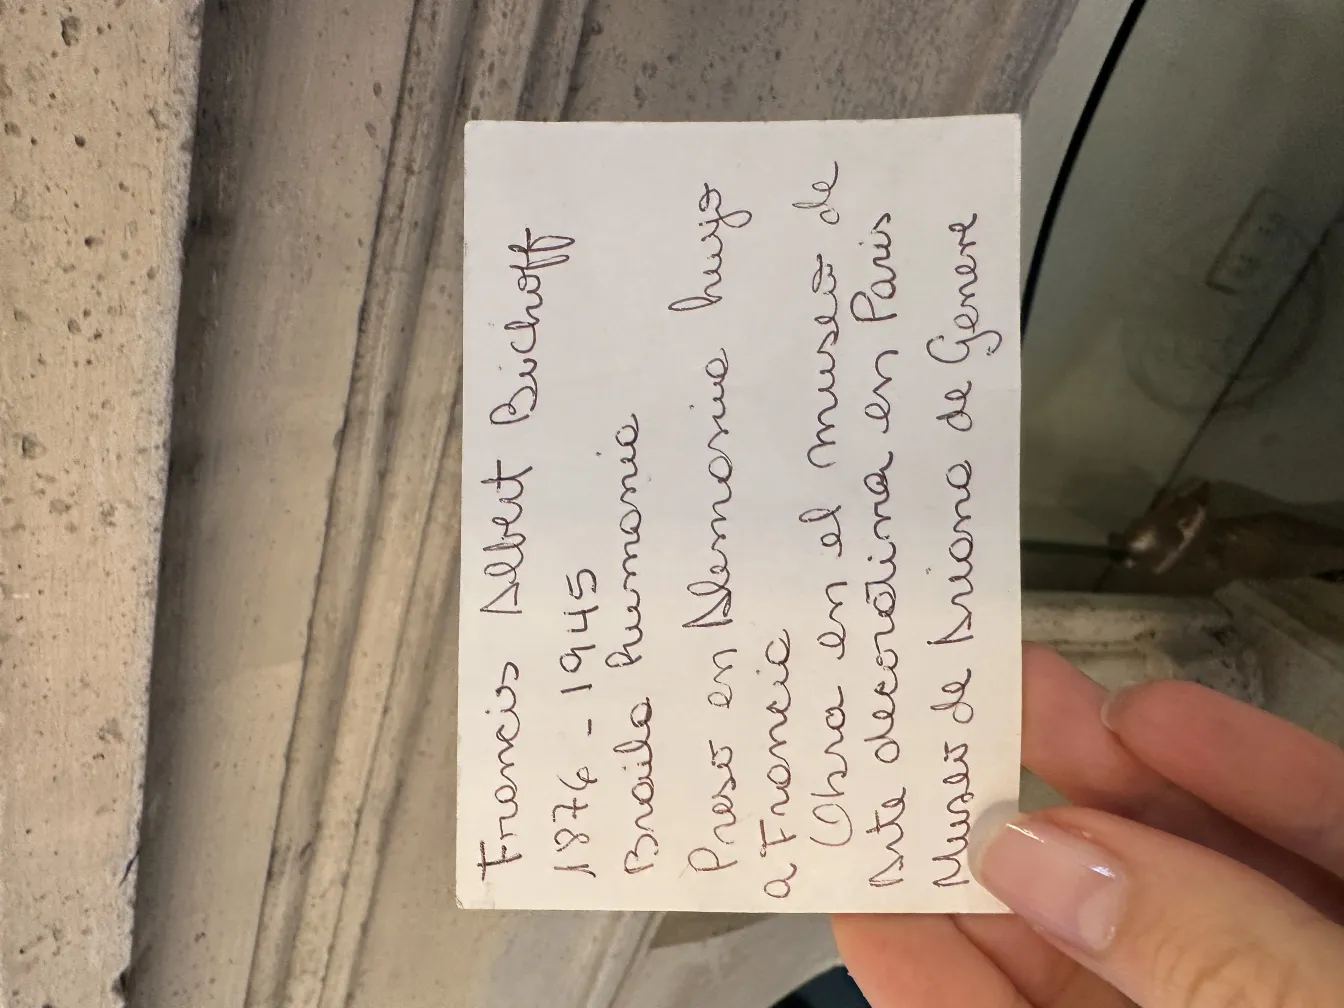 Francis Albert Bischoff
1874 - 1945
Braila Rumania
Preso en Alemania huyo
a Francia
Obra en el museo de
Arte decorativa en Paris
Museo de Ariana de Genere